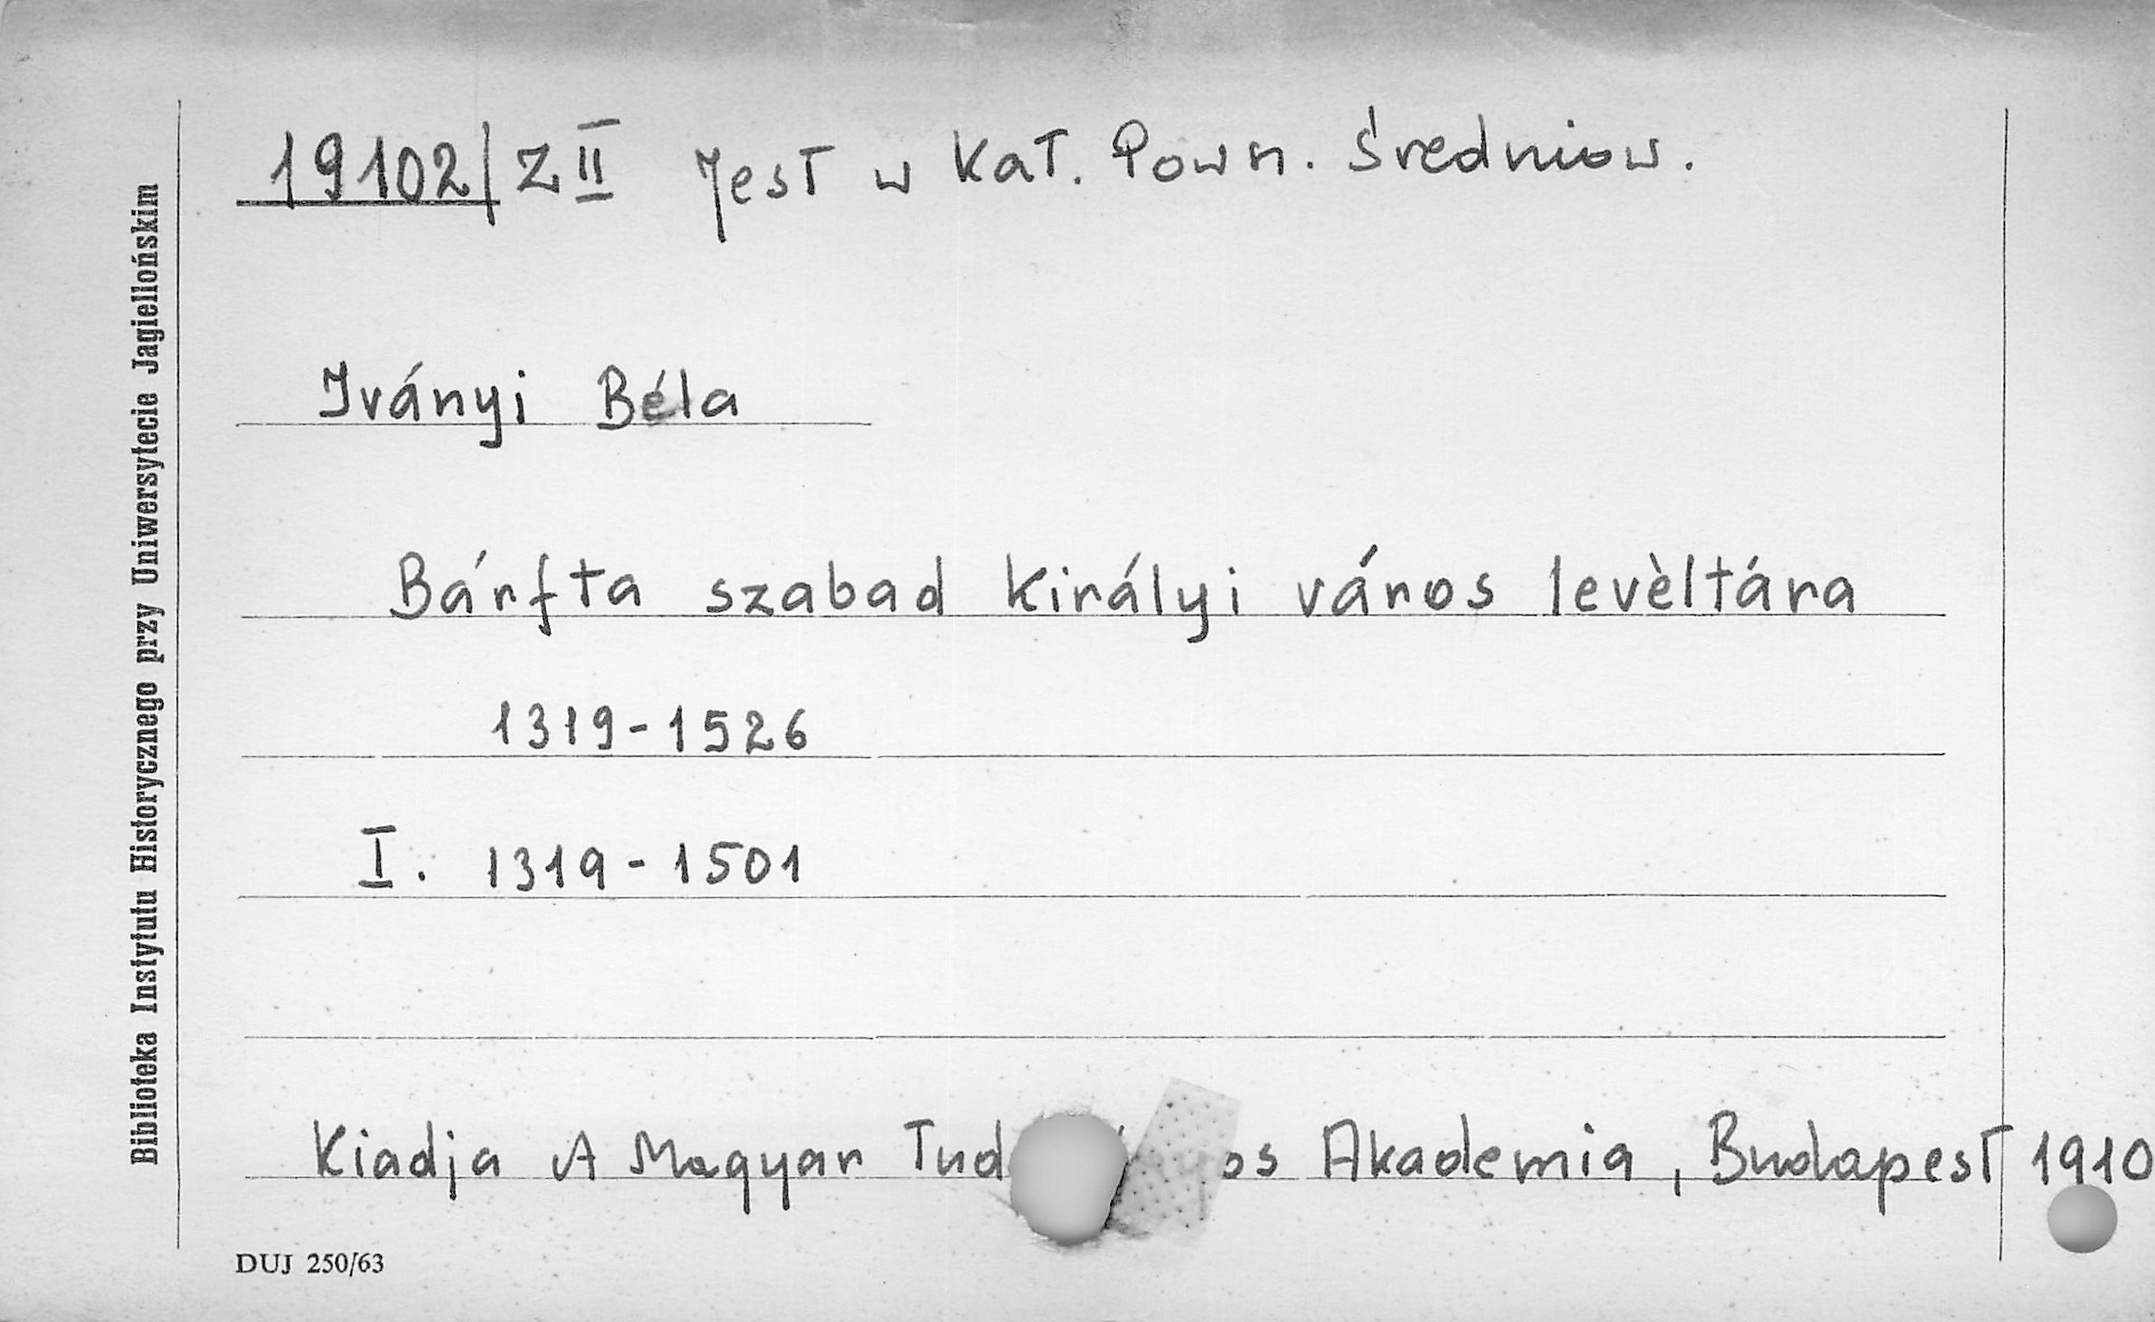 19102/Z II Jest w Kat. Pown. Średniow.
Iványi Béla
Bárfta szabad királyi város levèltára
1319-1526
I. 1319-1501
Kiadja A Magyar Akademia, Budapest 1910
DUJ 250/63
Biblioteka Instytutu Historycznego przy Uniwersytecie Jagiellońskim